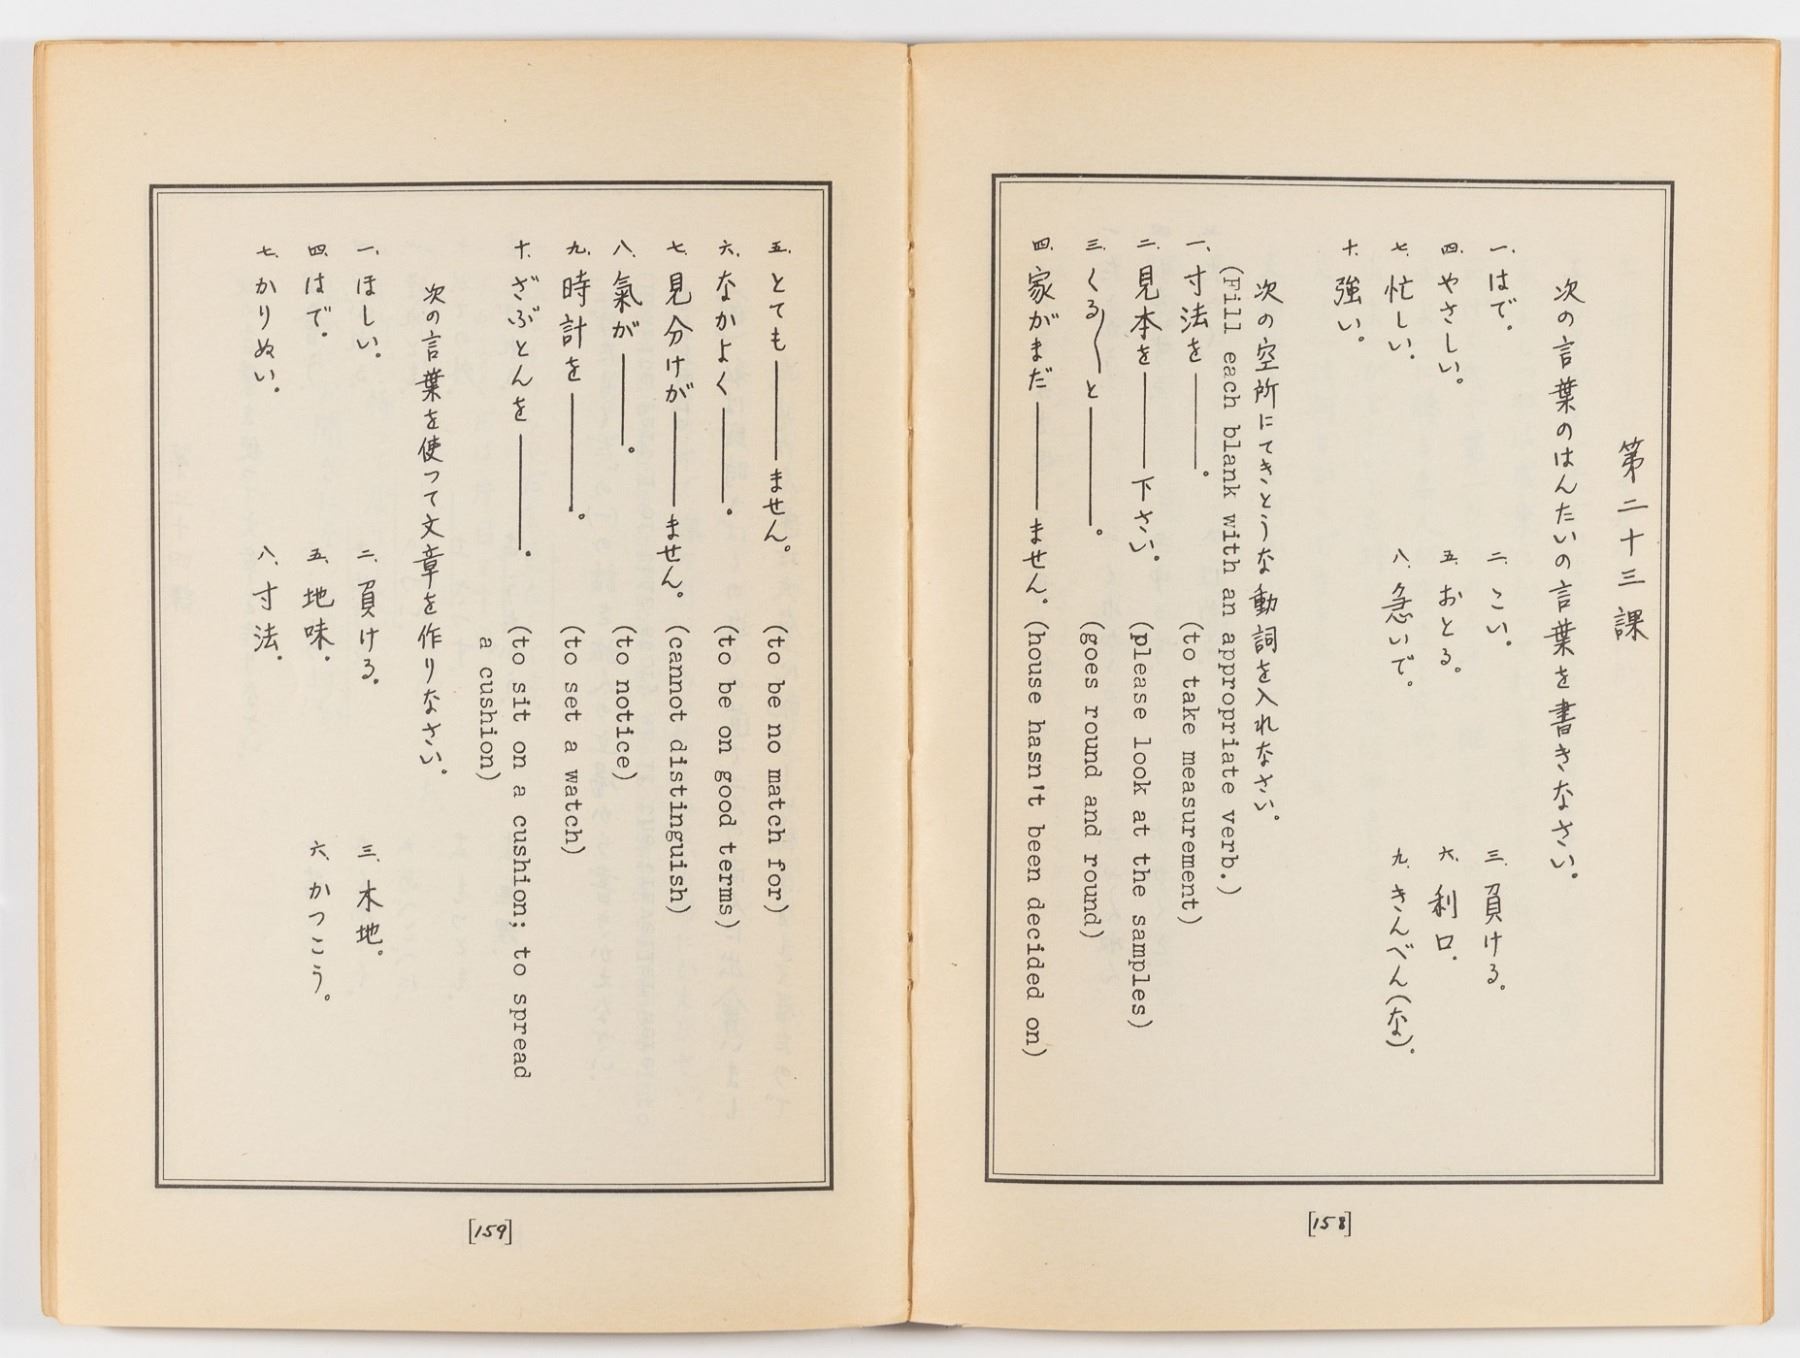 第二十三課
次の言葉のはんたいの言葉を書きなさい。
一、はで。 二、こい。 三、負ける。
四、やさしい。 五、おとる。 六、利口。
七、忙しい。 八、急いで。 九、きんべん(な)。
十、強い。
次の空所にてきとうな動詞を入れなさい。
(Fill each blank with an appropriate verb.)
一、寸法を———。 (to take measurement)
二、見本を———下さい。 (please look at the samples)
三、くる〱と———。 (goes round and round)
四、家がまだ———ません。 (house hasn't been decided on)
[158]
五、とても———ません。 (to be no match for)
六、なかよく———。 (to be on good terms)
七、見分けが———ません。 (cannot distinguish)
八、氣が———。 (to notice)
九、時計を———。 (to set a watch)
十、ざぶとんを———。 (to sit on a cushion; to spread
a cushion)
次の言葉を使つて文章を作りなさい。
一、ほしい。 二、負ける。 三、木地。
四、はで。 五、地味。 六、かつこう。
七、かりぬい。 八、寸法。
[159]